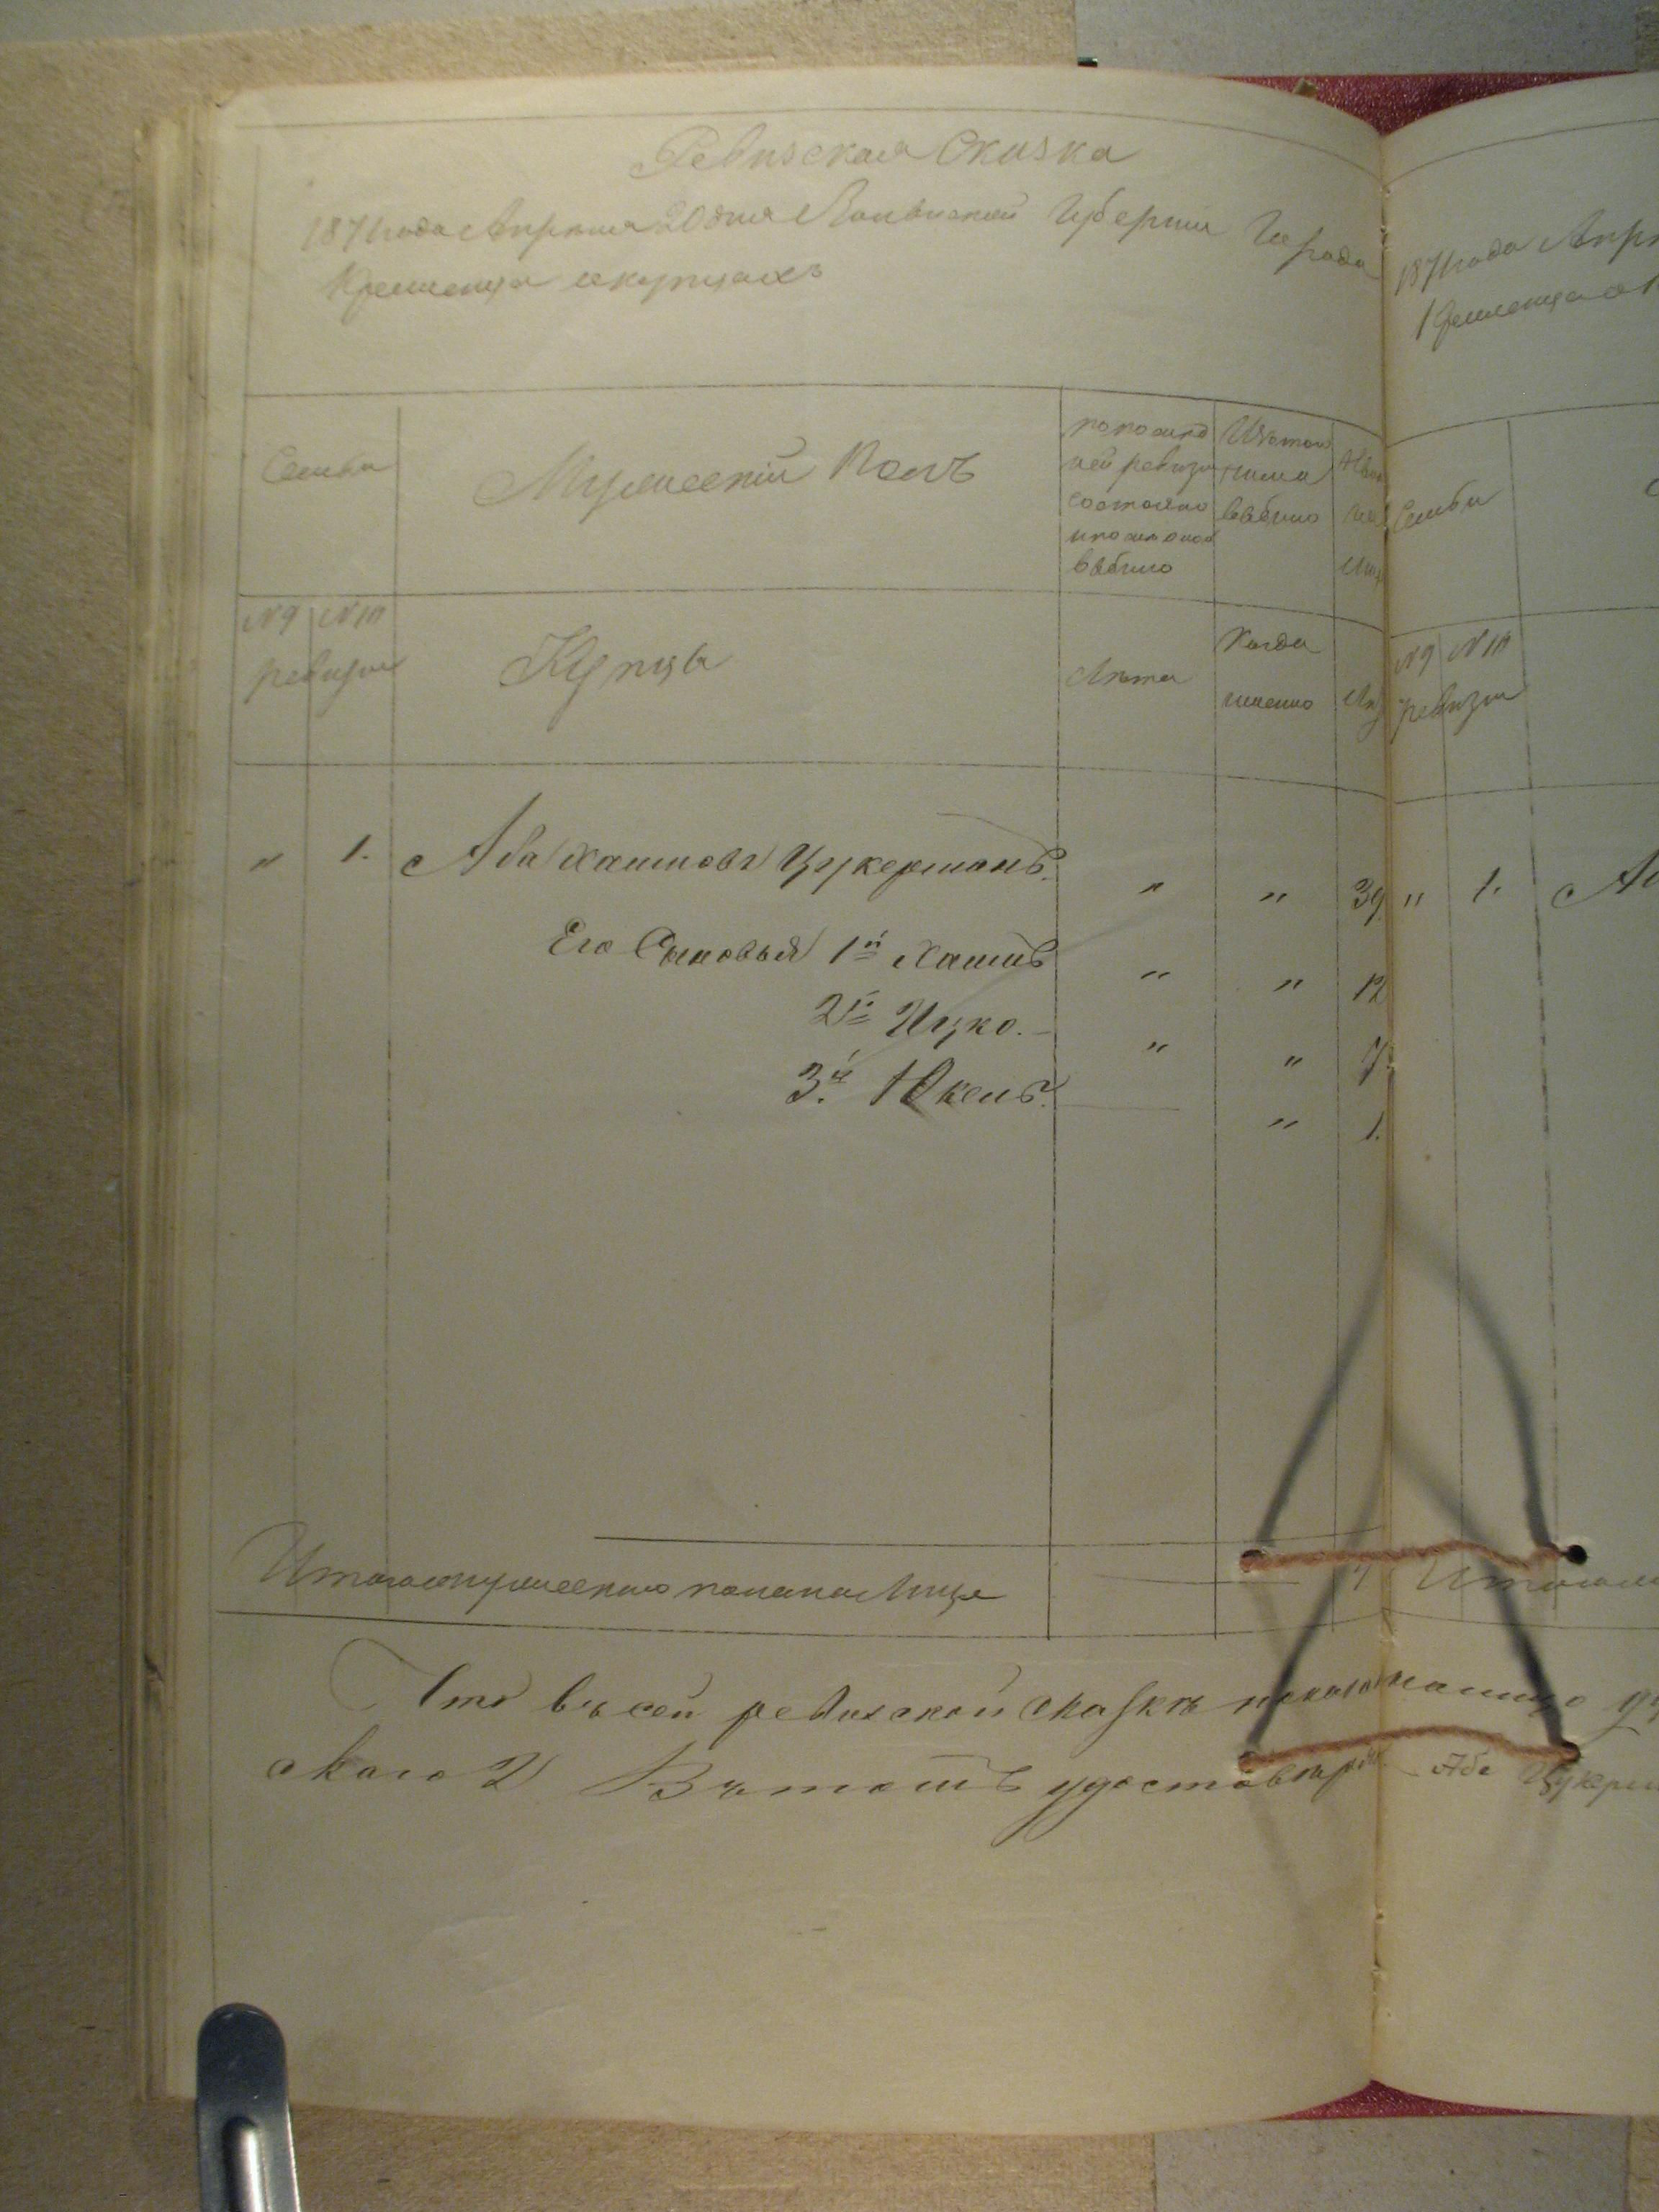 Ревизская Сказка
1871 года Апреля 20 дня Волынской Губернии Города
Кременца о купцахъ
Семьи
Мужескій Полъ
по послѣд
ней ревизіи
состояло
и послѣ того
выбыло
Изъ того
числа
выбыло
Нын
№ 9 № 10
ревизіи
Купцы
Лѣта
Когда
именно
" 1. Аба Хаимовъ Цукерманъ. " " 39
Его Сыновья 1й Хаимъ " " 12
2й Ицко. " " 7.
3й Юкель. " 1.
Итого мужеского пола на Лицо 4
Что въ сей ревизской сказкѣ показано налицо
ского 2 Въ томъ удостовѣряю Аба Цукерм
1871 года Апр
Кременца о
Семьи
№ 9 № 10
ревизіи
" 1. Аб
Итого